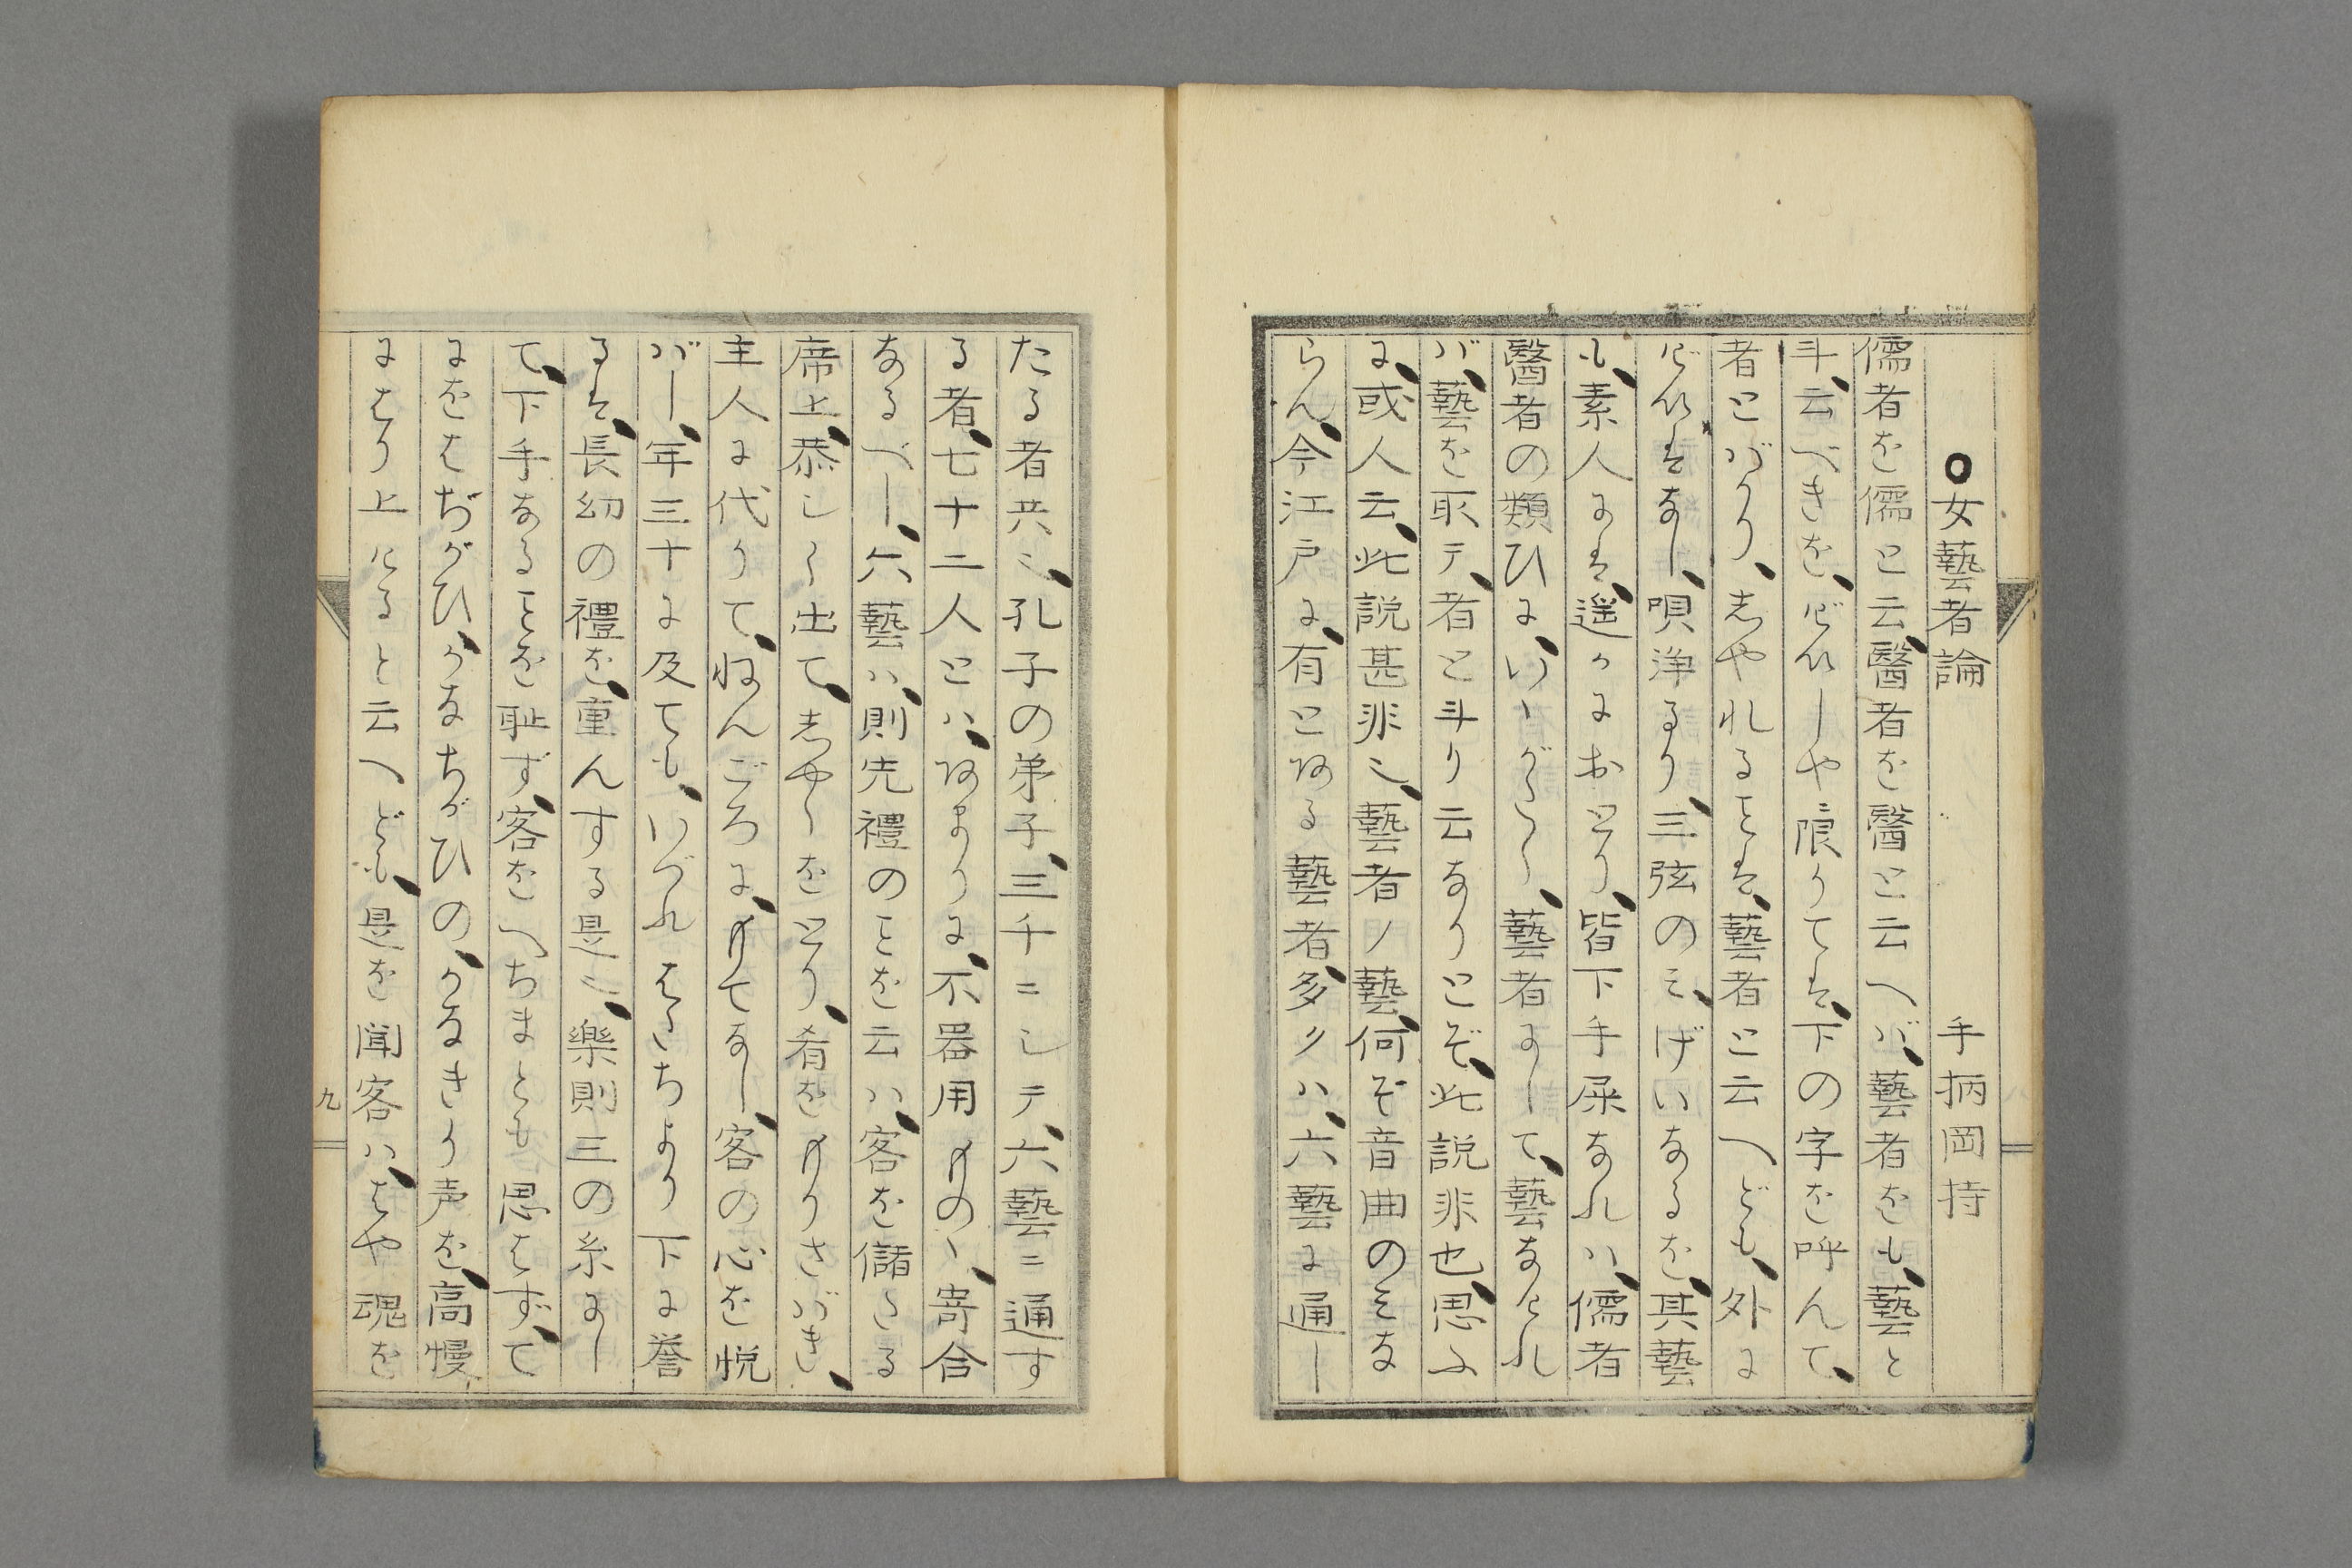 ○女藝者論　手柄岡持
儒者を儒と云、醫者を醫と云へバ、藝者をも、藝と
斗、云べきを、げいしや限りては、下の字を呼んで、
者とばかり、志やれることは、藝者と云へども、外に
げいはなし、唄浄るり、三弦のミ、げいなるを、其藝
も、素人よは、遥かにおとり、皆下手屎なれハ、儒者
醫者の類ひに、いゝがたく、藝者にして、藝なけれ
バ、藝を取テ、者と斗り云なりとぞ、此説非也、思ふ
に、或人云、此説甚非也、藝者ノ藝、何ぞ音曲のミな
らん、今江戸に、有とある藝者、多クハ、六藝に通し
たる者共也、孔子の弟子、三千ニしテ、六藝ニ通す
る者、七十二人とハ、あまりに、不器用ものゝ、寄合
なるべし、六藝ハ、則先禮のことを云ハ、客を儲たる
席上、恭しく出て、志やくをとり、肴をもりさばき、
主人に代りて、ねんごろに、もてなし、客の心を悦
バし、年三十に及ても、いづれはたちより下に誉
るは、長幼の禮を、重んする是也、樂則三の糸にし
て、下手なることを恥ず、客をへちまとも思はず、て
にをはぢがひ、かなちがひの、かなきり声を、高慢
にはり上けると云へども、是を聞客ハ、はや魂を
九